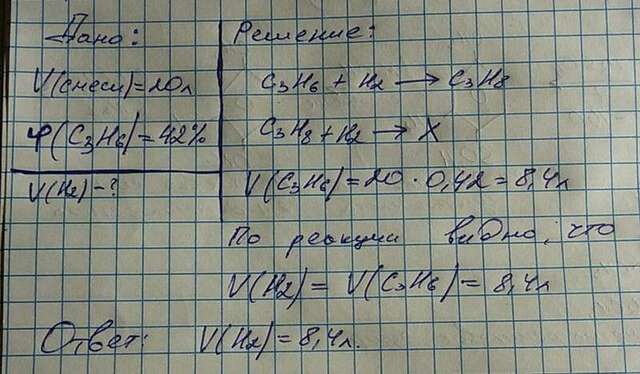 Дано:
V(смеси)=20л
φ(C3H6)=42%
V(H2)-?
Решение:
C3H6 + H2 → C3H8
C3H8 + H2 → X
V(C3H6)=20·0,42=8,4л
По реакции видно, что
V(H2)= V(C3H6)= 8,4л
Ответ: V(H2)=8,4л.